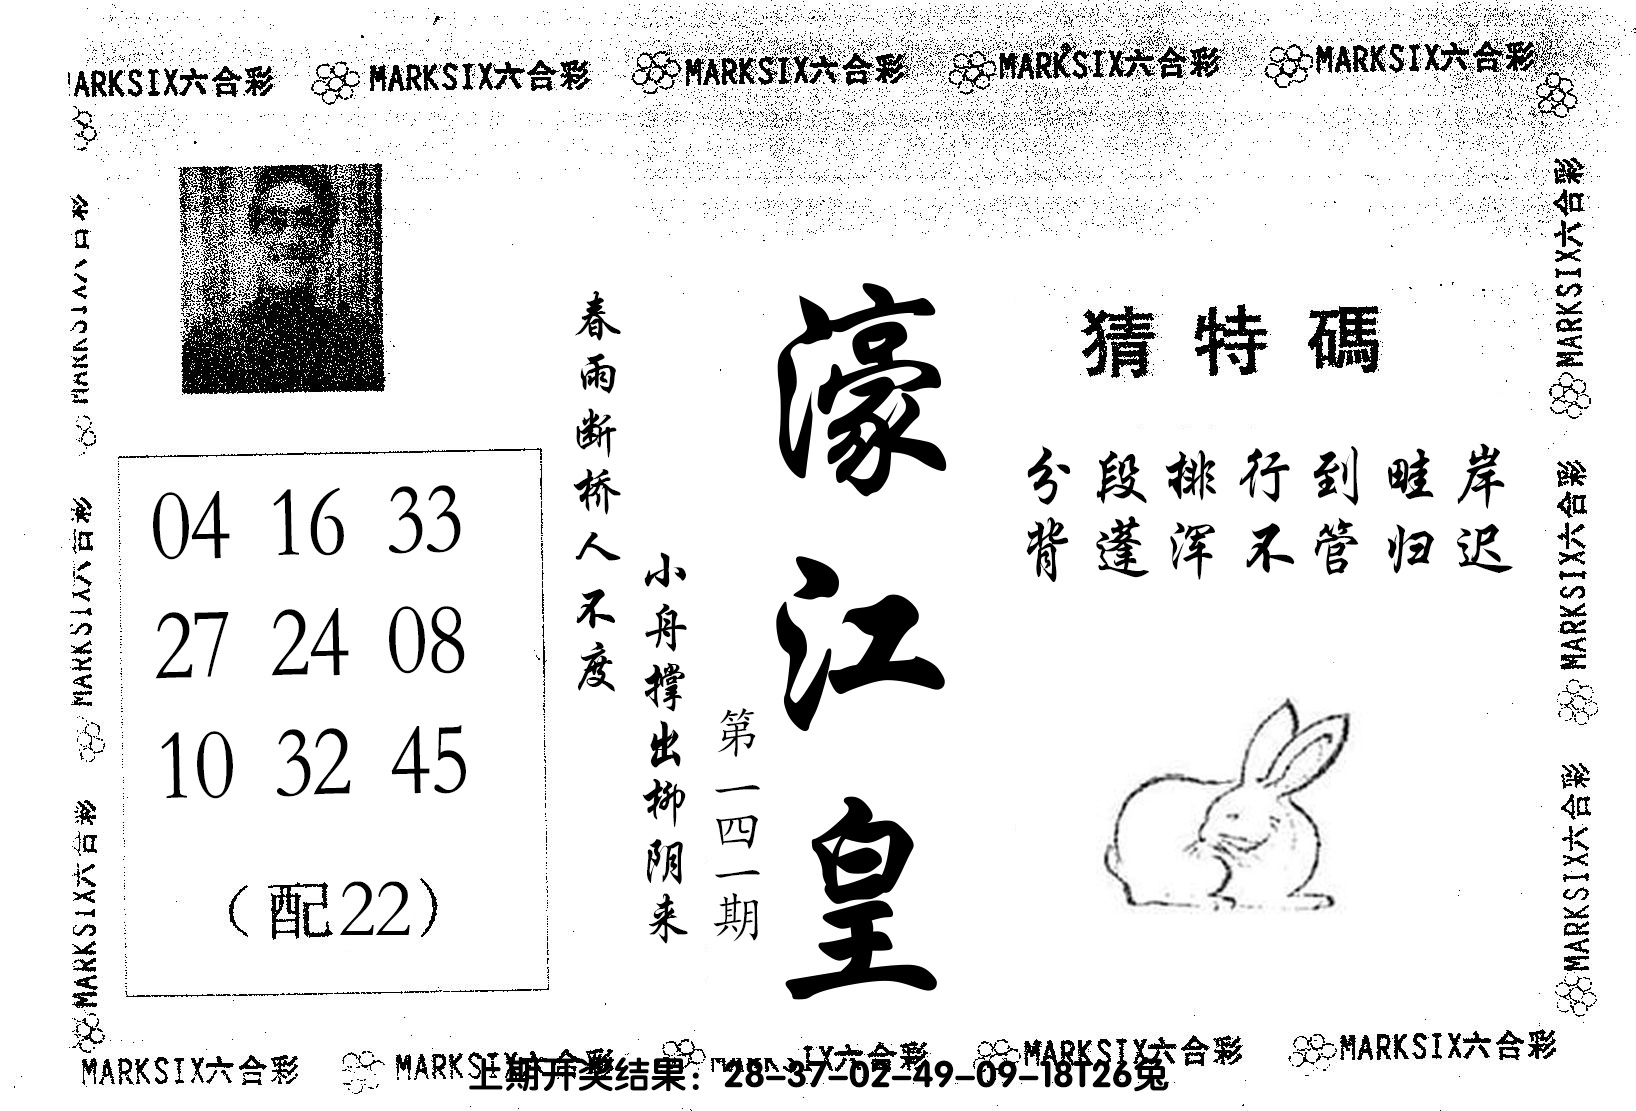 MARKSIX六合彩 MARKSIX六合彩 MARKSIX六合彩 MARKSIX六合彩 MARKSIX六合彩
MARKSIX六合彩
MARKSIX六合彩
MARKSIX六合彩
04 16 33
27 24 08
10 32 45
（配22）
春雨断桥人不度
小舟撑出柳阴来
第一四一期
濠江皇
猜特碼
分段排行到畦岸
背蓬浑不管归迟
MARKSIX六合彩
MARKSIX六合彩
MARKSIX六合彩
MARKSIX六合彩 MARKSIX六合彩 MARKSIX六合彩 MARKSIX六合彩 MARKSIX六合彩
上期开奖结果：28-37-02-49-09-18T26兔